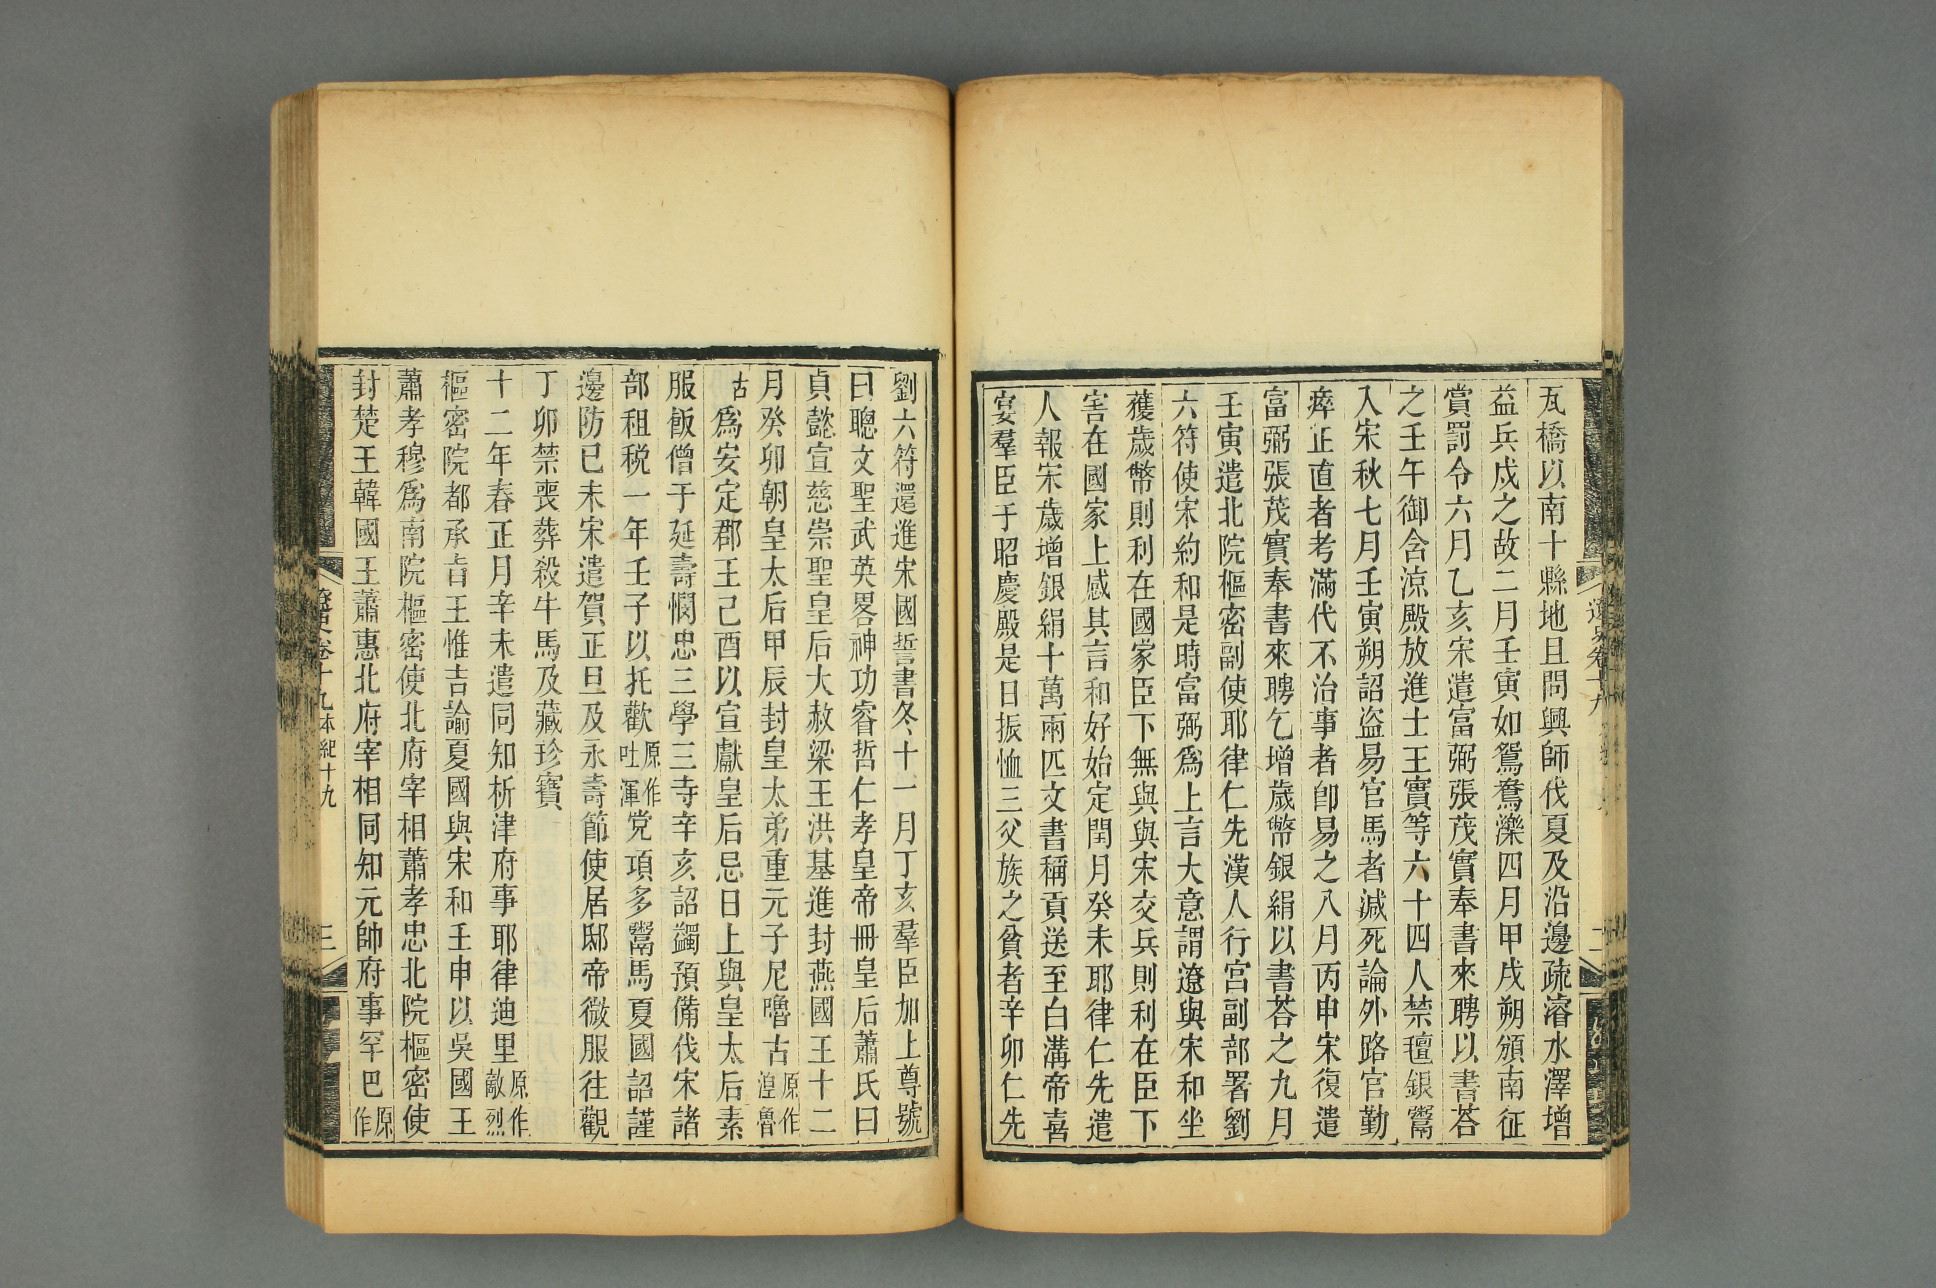 瓦橋以南十縣地且問興師伐夏及沿邊疏濬水澤增
益兵戍之故二月壬寅如鴛鴦濼四月甲戌朔頒南征
賞罰令六月乙亥宋遣富弼張茂實奉書來聘以書荅
之壬午御含涼殿放進士王實等六十四人禁氊銀鬻
入宋秋七月壬寅朔詔盜易官馬者減死論外路官勤
瘁正直者考滿代不治事者卽易之八月丙申宋復遣
富弼張茂實奉書來聘乞增歲幣銀絹以書荅之九月
壬寅遣北院樞密副使耶律仁先漢人行宮副部署劉
六符使宋約和是時富弼爲上言大意謂遼與宋和坐
獲歲幣則利在國家臣下無與與宋交兵則利在臣下
害在國家上感其言和好始定閏月癸未耶律仁先遣
人報宋歲增銀絹十萬兩匹文書稱貢送至白溝帝喜
宴羣臣于昭慶殿是日振恤三父族之貧者辛卯仁先
遼史卷十九
二
劉六符還進宋國誓書冬十一月丁亥羣臣加上尊號
曰聰文聖武英畧神功睿哲仁孝皇帝冊皇后蕭氏曰
貞懿宣慈崇聖皇后大赦梁王洪基進封燕國王十二
月癸卯朝皇太后甲辰封皇太弟重元子尼嚕古原作湼魯
古爲安定郡王己酉以宣獻皇后忌日上與皇太后素
服飯僧于延壽憫忠三學三寺辛亥詔蠲預備伐宋諸
部租稅一年壬子以托歡原作吐渾党項多鬻馬夏國詔謹
邊防己未宋遣賀正旦及永壽節使居邸帝微服往觀
丁卯禁喪葬殺牛馬及藏珍寶
十二年春正月辛未遣同知析津府事耶律迪里原作敵烈
樞密院都承旨王惟吉諭夏國與宋和壬申以吳國王
蕭孝穆爲南院樞密使北府宰相蕭孝忠北院樞密使
封楚王韓國王蕭惠北府宰相同知元帥府事罕巴原作
遼史卷十九 本紀十九
三